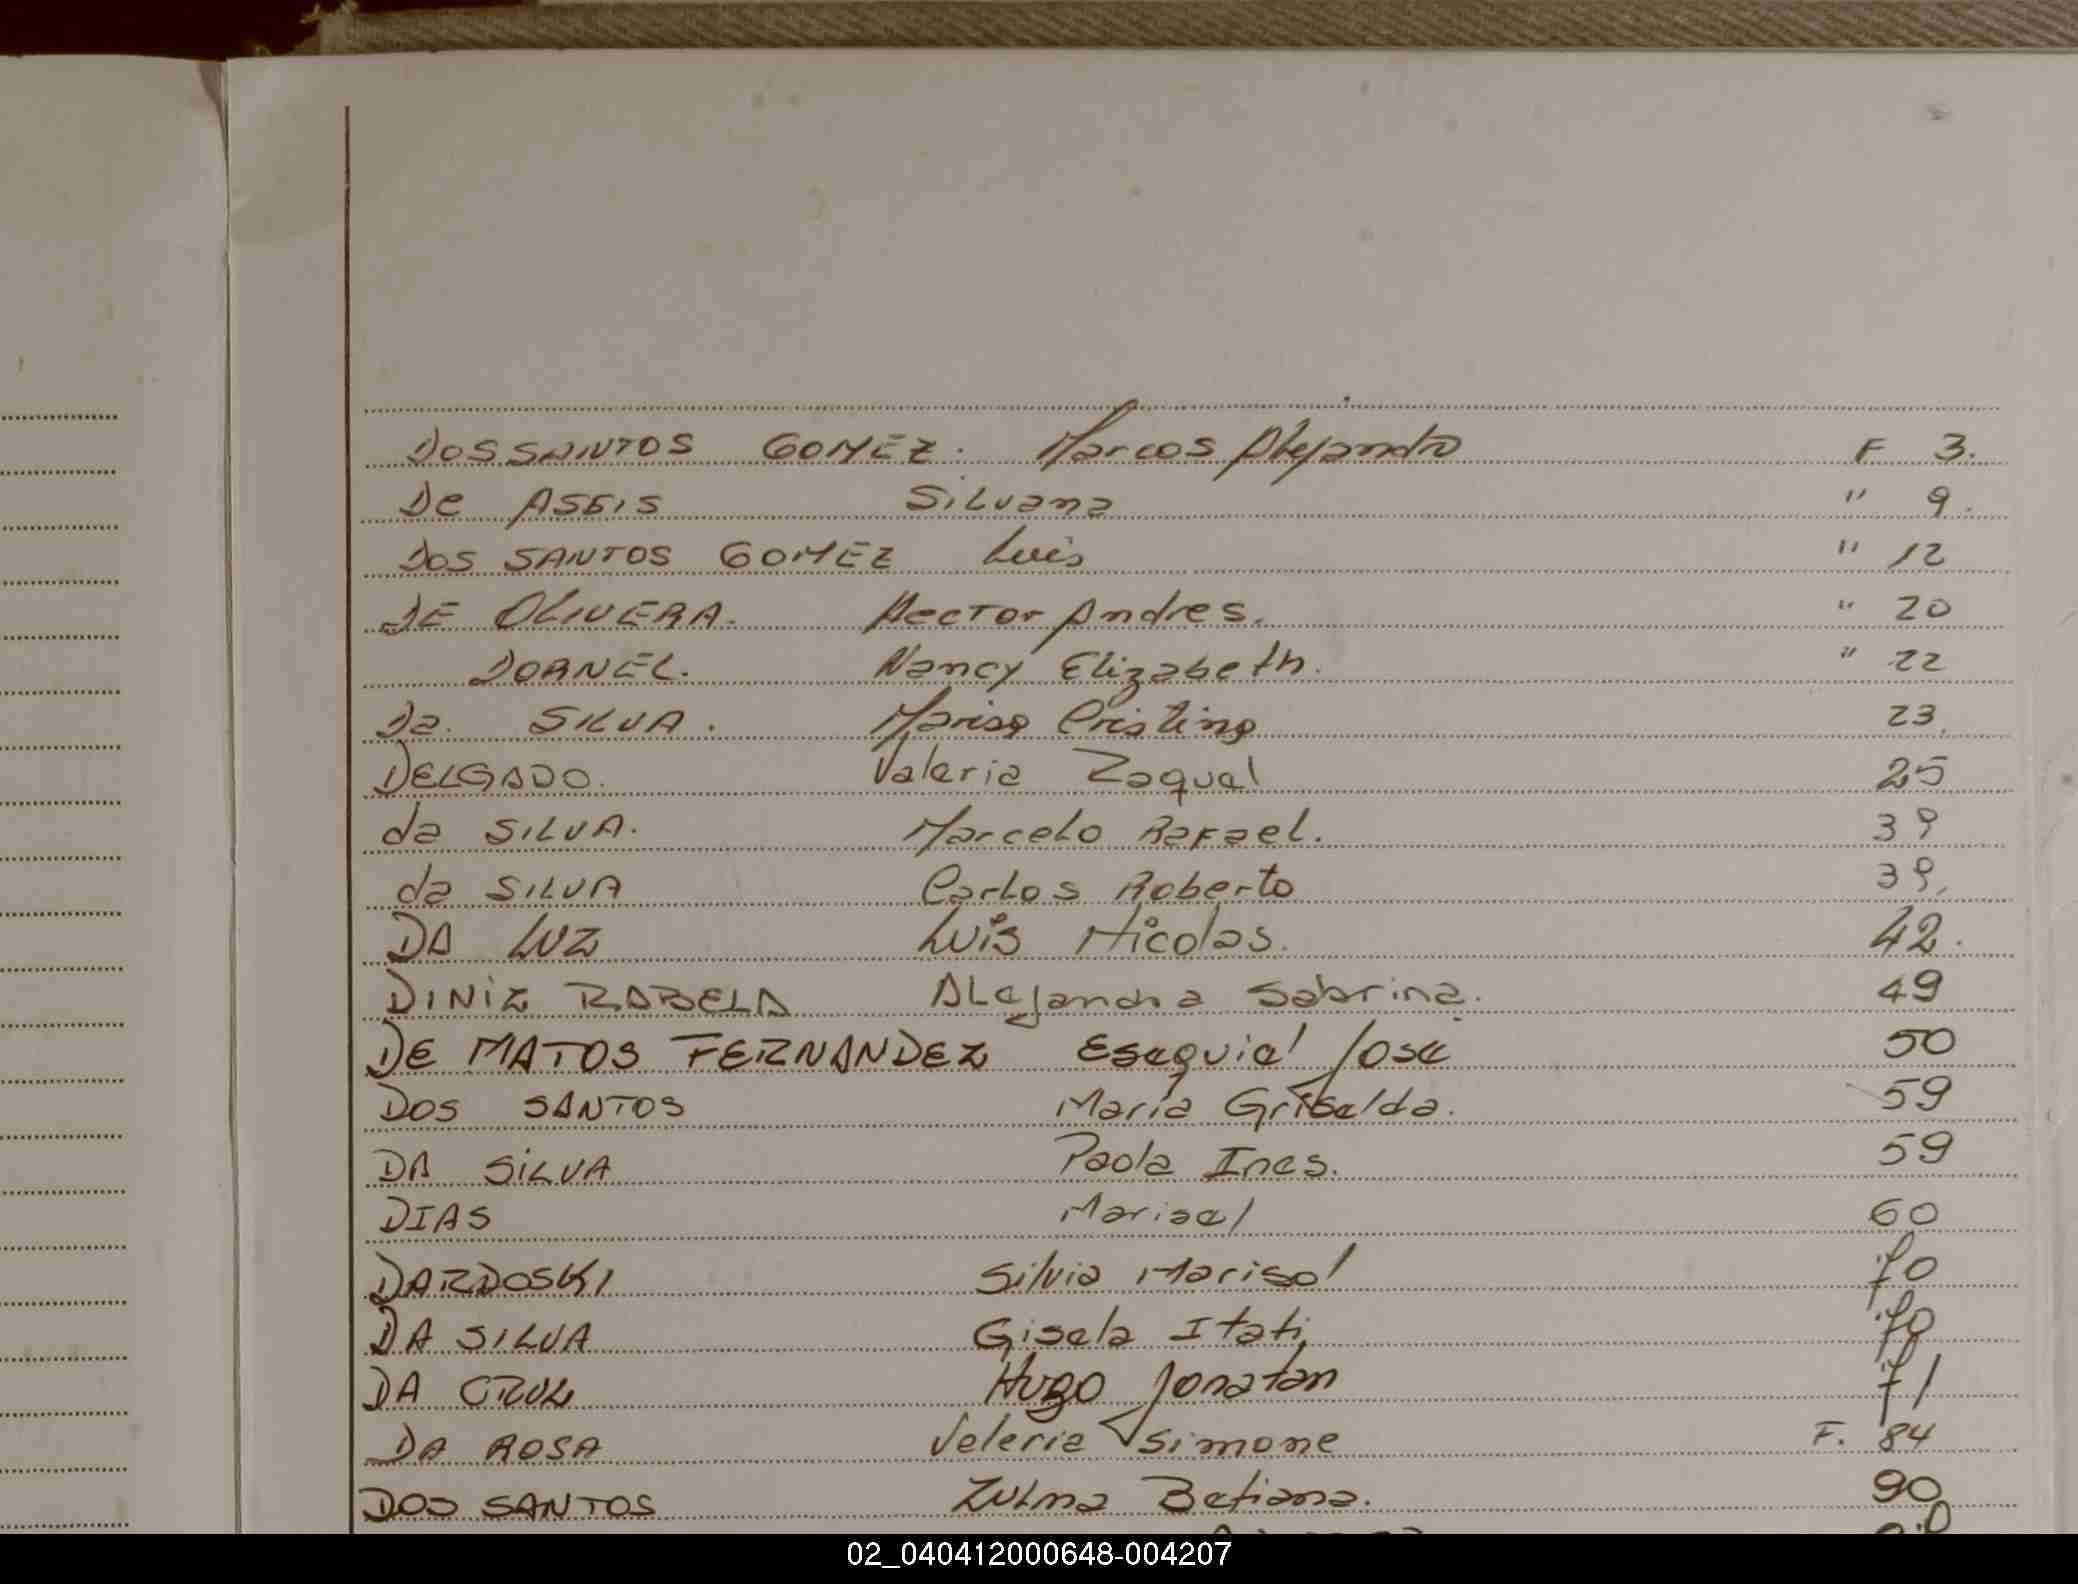 DOS SANTOS GOMEZ. Marcos Alejandro F 3.
De ASSIS Silvana " 9.
DOS SANTOS GOMEZ Luis " 12
DE OLIVERA. Hector Andres. " 20
DORNEL. Nancy Elizabeth. " 22
Da. SILVA. Marisa Cristina 23.
DELGADO. Valeria Raquel 25
da SILVA. Marcelo Rafael. 39
da SILVA Carlos Roberto 39.
DA LUZ Luis Nicolas. 42.
DINIZ RABELA Alejandra Sabrina. 49
DE MATOS FERNANDEZ Esequiel Jose 50
DOS SANTOS María Griselda. 59
DA SILVA Paola Ines. 59
DIAS Marisel 60
DARDOSKI Silvia Marisol 70
DA SILVA Gisela Itati 70
DA CRUZ Hugo Jonatan 71
DA ROSA Veleria Simone F. 84
DOS SANTOS Zulma Betiana. 90
02_040412000648-004207